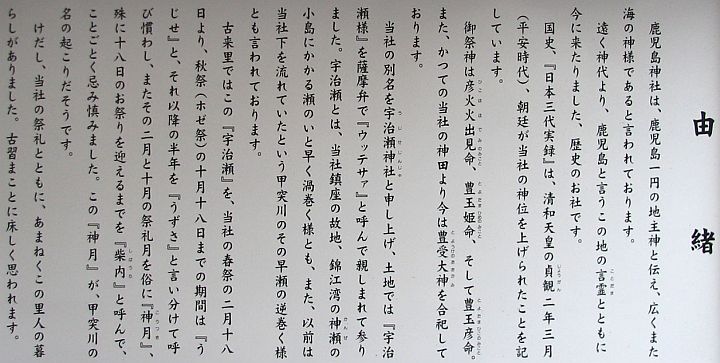 由緒
鹿児島神社は、鹿児島一円の地主神と伝え、広くまた
海の神様であると言われております。
遠く神代より、鹿児島と言うこの地の言霊とともに
今に来たりました、歴史のお社です。
国史、『日本三代実録』は、清和天皇の貞観二年三月
(平安時代)、朝廷が当社の神位を上げられたことを記
しています。
御祭神は彦火火出見命、豊玉姫命、そして豊玉彦命。
また、かつての当社の神田より今は豊受大神を合祀して
おります。
当社の別名を宇治瀬神社と申し上げ、土地では『宇治
瀬様』を薩摩弁で『ウッテサァ』と呼んで親しまれて参り
ました。宇治瀬とは、当社鎮座の故地、錦江湾の神瀬の
小島にかかる瀬のいと早く渦巻く様とも、また、以前は
当社下を流れていたという甲突川のその早瀬の逆巻く様
とも言われております。
古来里ではこの『宇治瀬』を、当社の春祭の二月十八
日より、秋祭(ホゼ祭)の十月十八日までの期間は『う
じせ』と、それ以降の半年を『うずさ』と言い分けて呼
び慣わし、またその二月と十月の祭礼月を俗に『神月』、
殊に十八日のお祭りを迎えるまでを『柴内』と呼んで、
ことごとく忌み慎みました。この『神月』が、甲突川の
名の起こりだそうです。
けだし、当社の祭礼とともに、あまねくこの里人の暮
らしがありました。古習まことに床しく思われます。